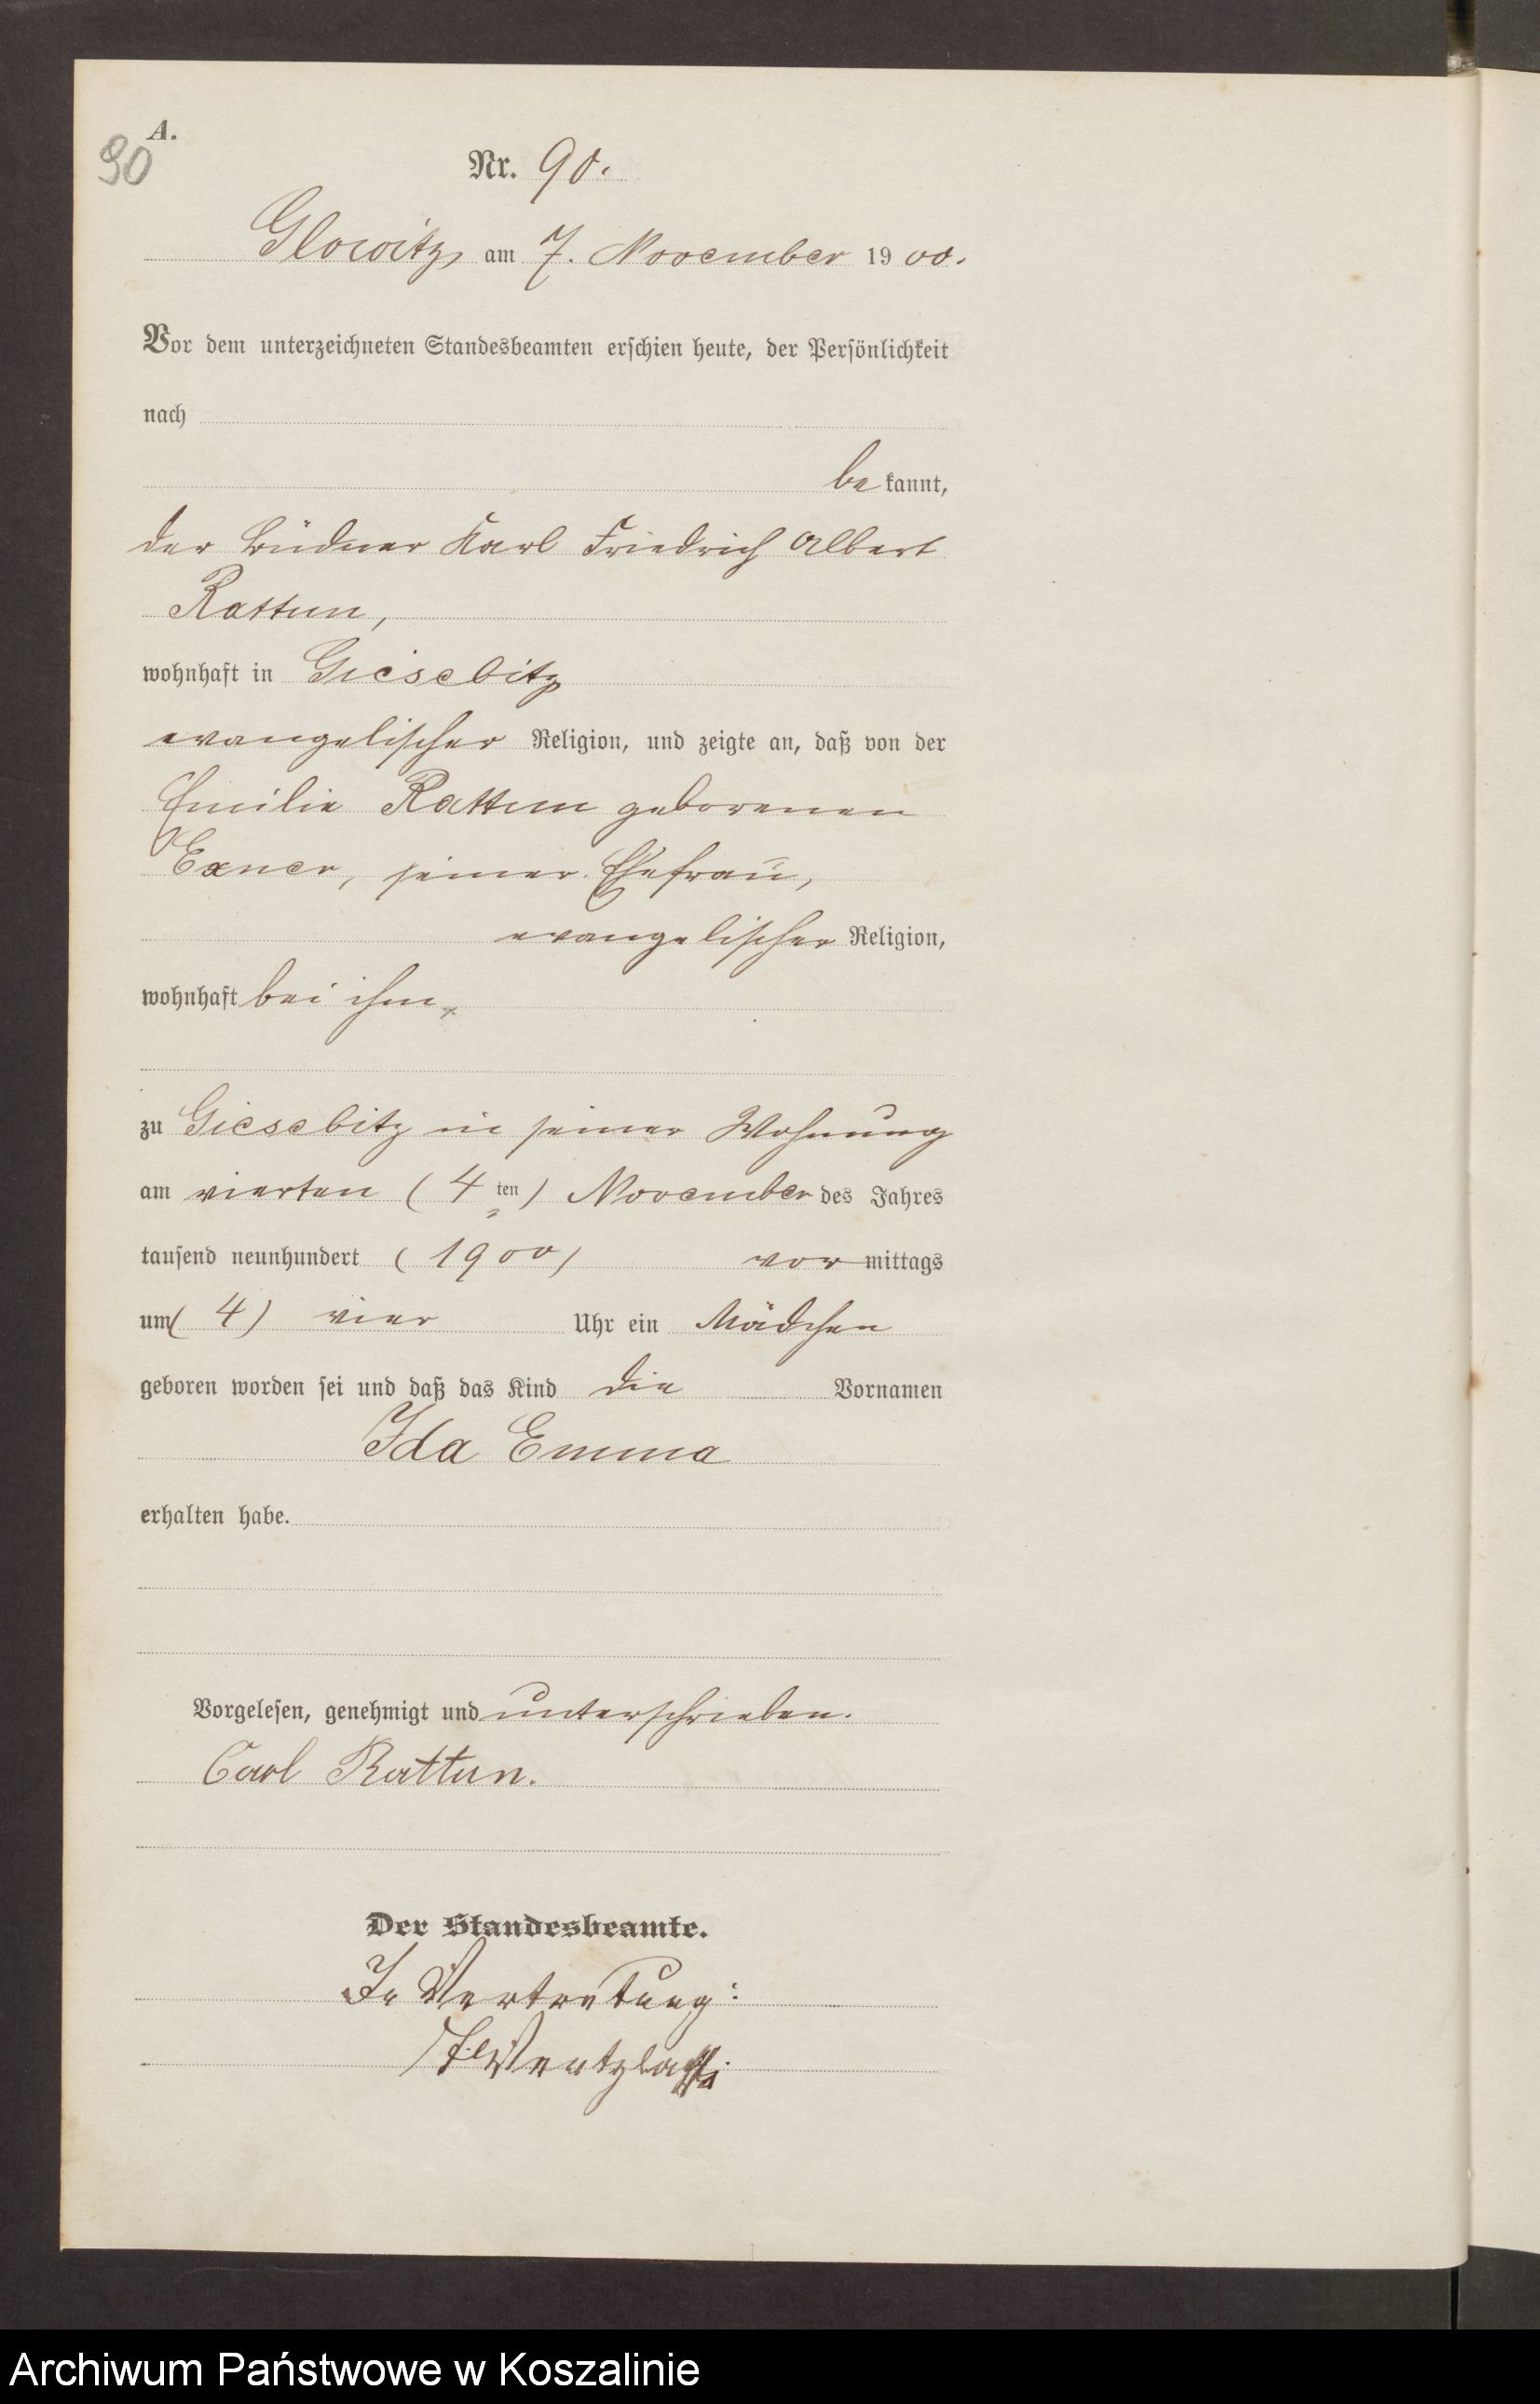 A.
90
Nr. 90.
Glowitz, am 7. November 1900.
Vor dem unterzeichneten Standesbeamten erschien heute, der Persönlichkeit
nach
bekannt,
der Büdner Karl Friedrich Albert
Rattun,
wohnhaft in Giesebitz
evangelischer Religion, und zeigte an, daß von der
Emilie Rattun geborenen
Exner, seiner Ehefrau,
evangelischer Religion,
wohnhaft bei ihm,
zu Giesebitz in seiner Wohnung
am vierten (4 ten) November des Jahres
tausend neunhundert (1900) vormittags
um (4) vier Uhr ein Mädchen
geboren worden sei und daß das Kind die Vornamen
Ida Emma
erhalten habe.
Vorgelesen, genehmigt und unterschrieben.
Carl Rattun.
Der Standesbeamte.
In Vertretung:
Archiwum Państwowe w Koszalinie